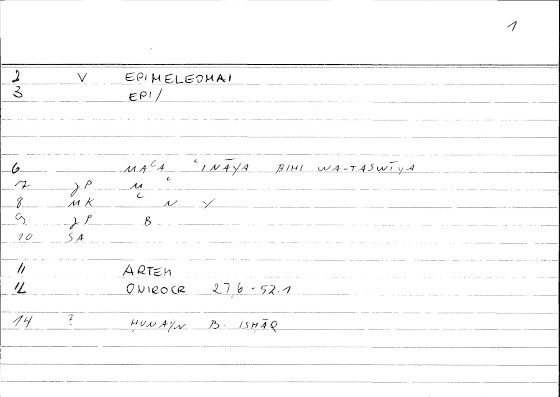 1
2 V EPIMELEOMAI
3 EPI/
6 MAʿA ʿINĀYA BIHI WA-TASWĪYA
7 gP M ʿ
8 MK ʿ N Y
9 gP B
10 SA
11 ARTEM
12 ONIROCR 27,6 - 52.1
14 ? ḤUNAYN B. ISḤĀQ